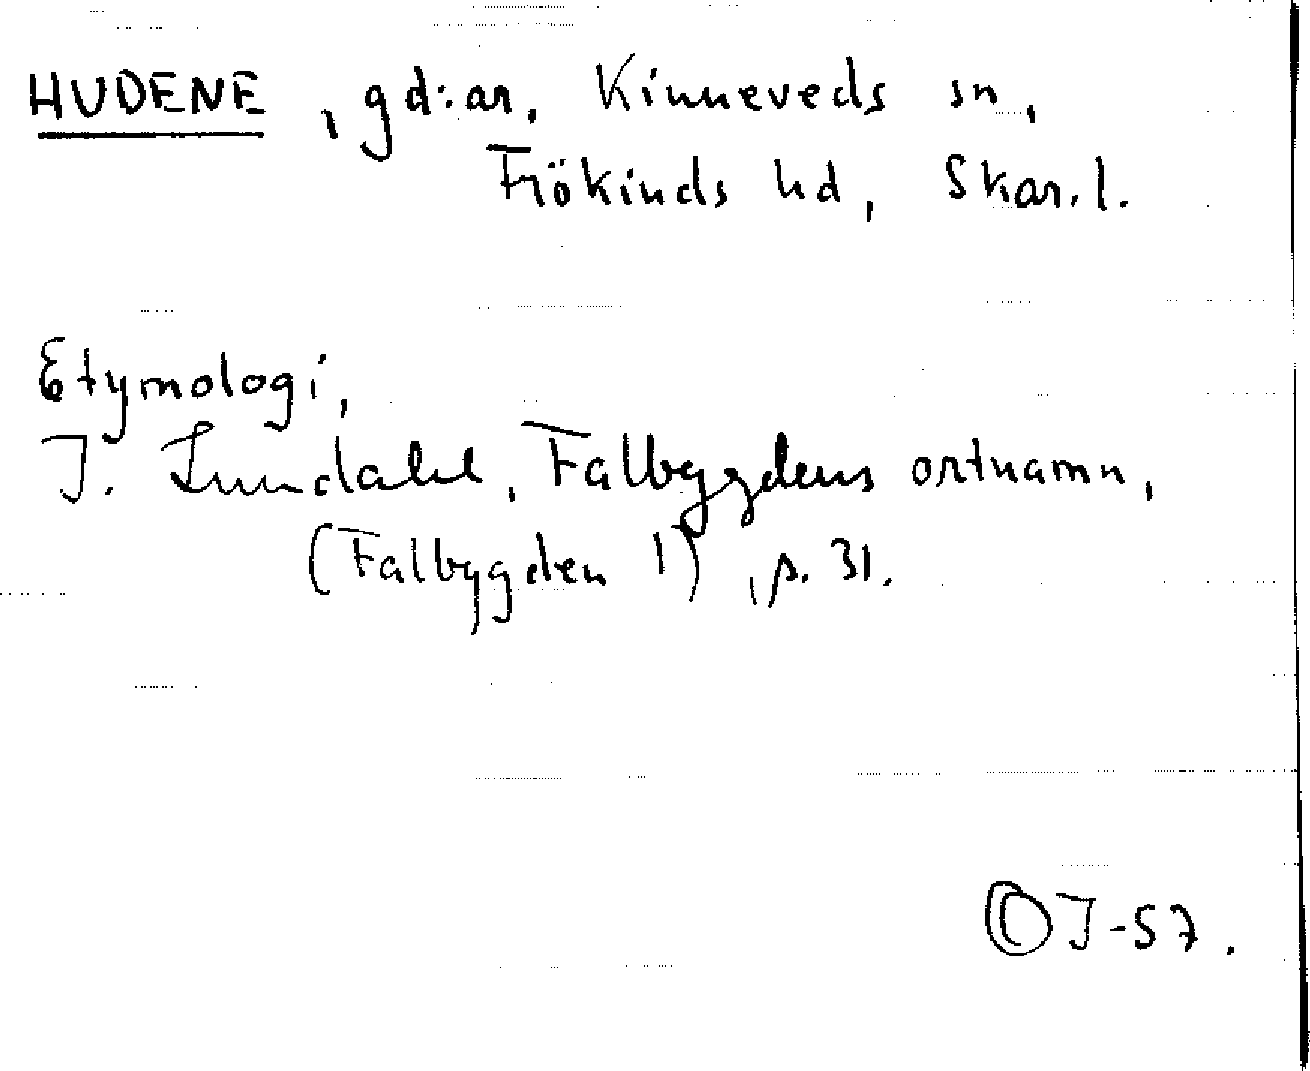 HUDENE, gd:ar, Kinneveds sn,
Frökinds hd, Skar.l.
Etymologi,
I. Lundahl, Falbygdens ortnamn,
(Falbygden 1), s. 31.
OJ-57.